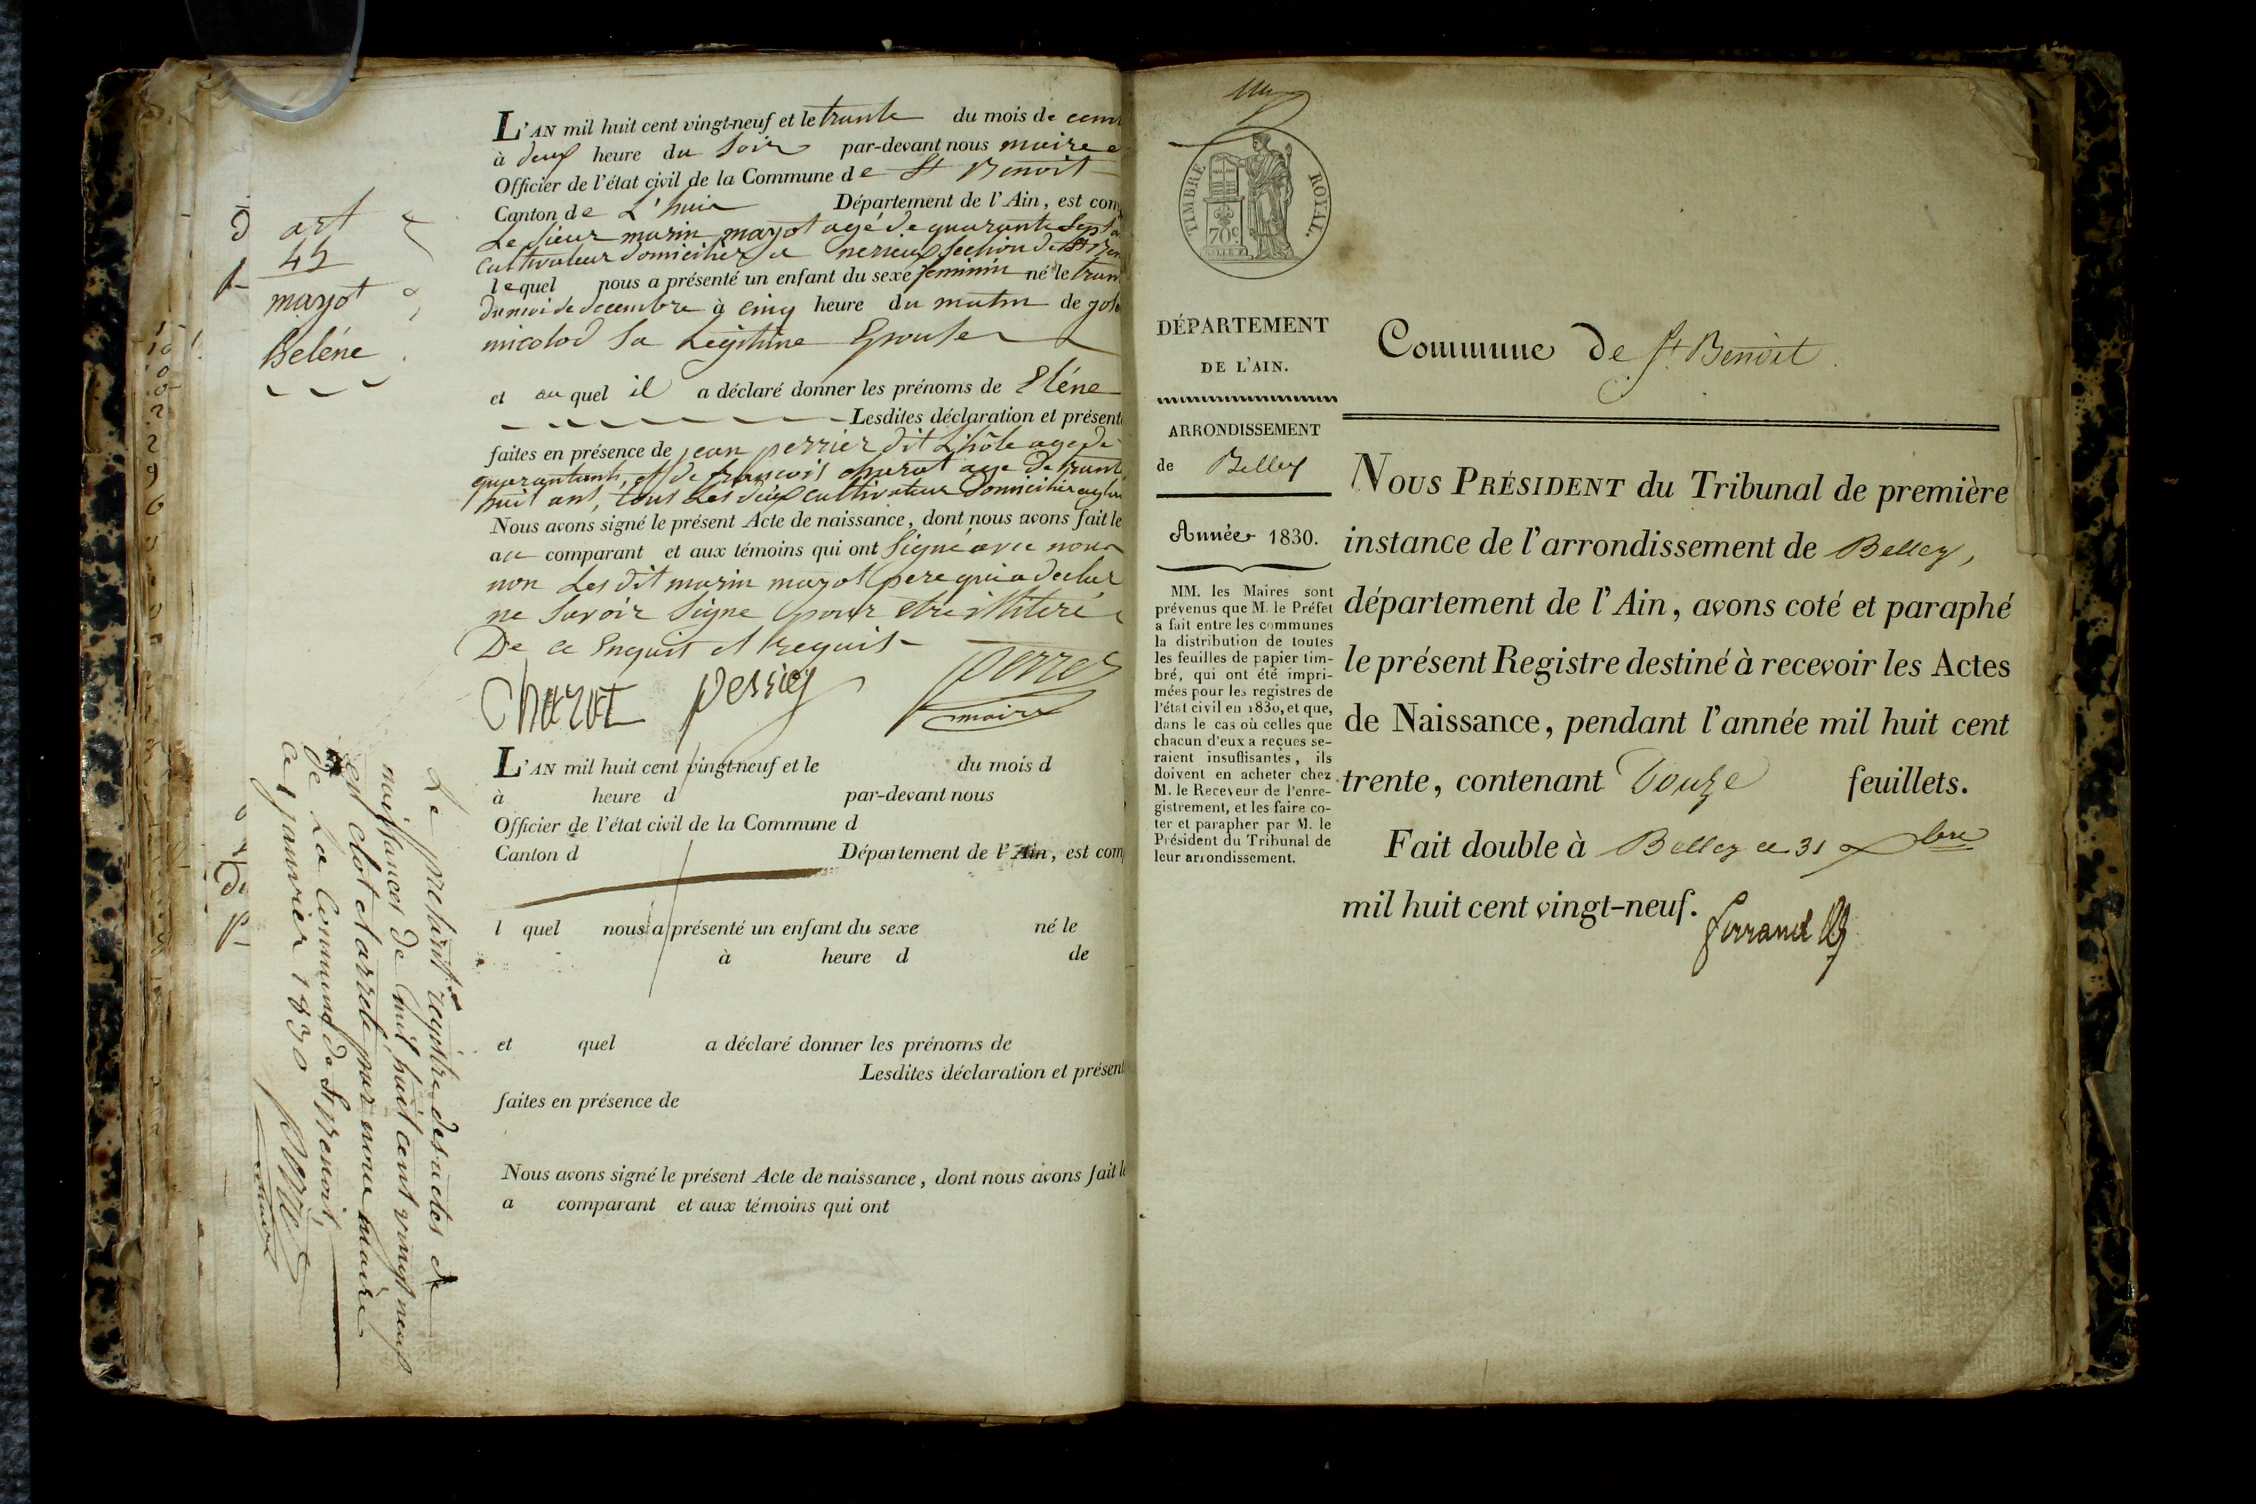 art
45
mayot
heléne
L'AN mil huit cent vingt-neuf et le trante du mois de
à deux heure du soir par-devant nous maire
Officier de l'état civil de la Commune de St Benoit
Canton de L'huis Département de l'Ain, est com
Le sieur marin mayot agé de quarante sept
cultivateur domicilier a section de St Ben
lequel nous a présenté un enfant du sexe feminin né le tran
du moi de decembre à cinq heure du matin de
nicolod sa Legitime Epouse
et auquel il a déclaré donner les prénoms de Eléne
Lesdites déclaration et présent
faites en présence de jean perrier dit L'hôte age de
quarantants, et de francois charot age de trant
huit ans, tous Les deux cultivateur domicilier
Nous avons signé le présent Acte de naissance, dont nous avons fait le
au comparant et aux témoins qui ont signé avec nous
non Les dit marin mayot pere qui a declar
ne savoir signe pour etre illiteré
De ce Enquit et requis
Charot perrier
maire
L'AN mil huit cent vingt-neuf et le du mois d
à heure d par-devant nous
Officier de l'état civil de la Commune d
Canton d Département de l'Ain, est com
l quel nous a présenté un enfant du sexe né le
à heure d de
et quel a déclaré donner les prénoms de
Lesdites déclaration et présent
faites en présence de
Nous avons signé le présent Acte de naissance, dont nous avons fait le
a comparant et aux témoins qui ont
Le present registre des actes de
naissances de mil huit cent vingt neuf
est clot et arreté par nous maire
de La Commune de St Benoit,
ce 1 janvier 1830
maire
TIMBRE ROYAL.
70c
DÉPARTEMENT
DE L'AIN.
ARRONDISSEMENT
de Belley
Année 1830.
MM. les Maires sont
prévenus que M. le Préfet
a fait entre les communes
la distribution de toutes
les feuilles de papier tim-
bré, qui ont été impri-
mées pour les registres de
l'état civil en 1830, et que,
dans le cas où celles que
chacun d'eux a reçues se-
raient insuffisantes, ils
doivent en acheter chez
M. le Receveur de l'enre-
gistrement, et les faire co-
ter et parapher par M. le
Président du Tribunal de
leur arrondissement.
Commune de St Benoit.
NOUS PRÉSIDENT du Tribunal de première
instance de l'arrondissement de Belley,
département de l'Ain, avons coté et paraphé
le présent Registre destiné à recevoir les Actes
de Naissance, pendant l'année mil huit cent
trente, contenant Douze feuillets.
Fait double à Belley ce 31 Xbre
mil huit cent vingt-neuf.
ferrand